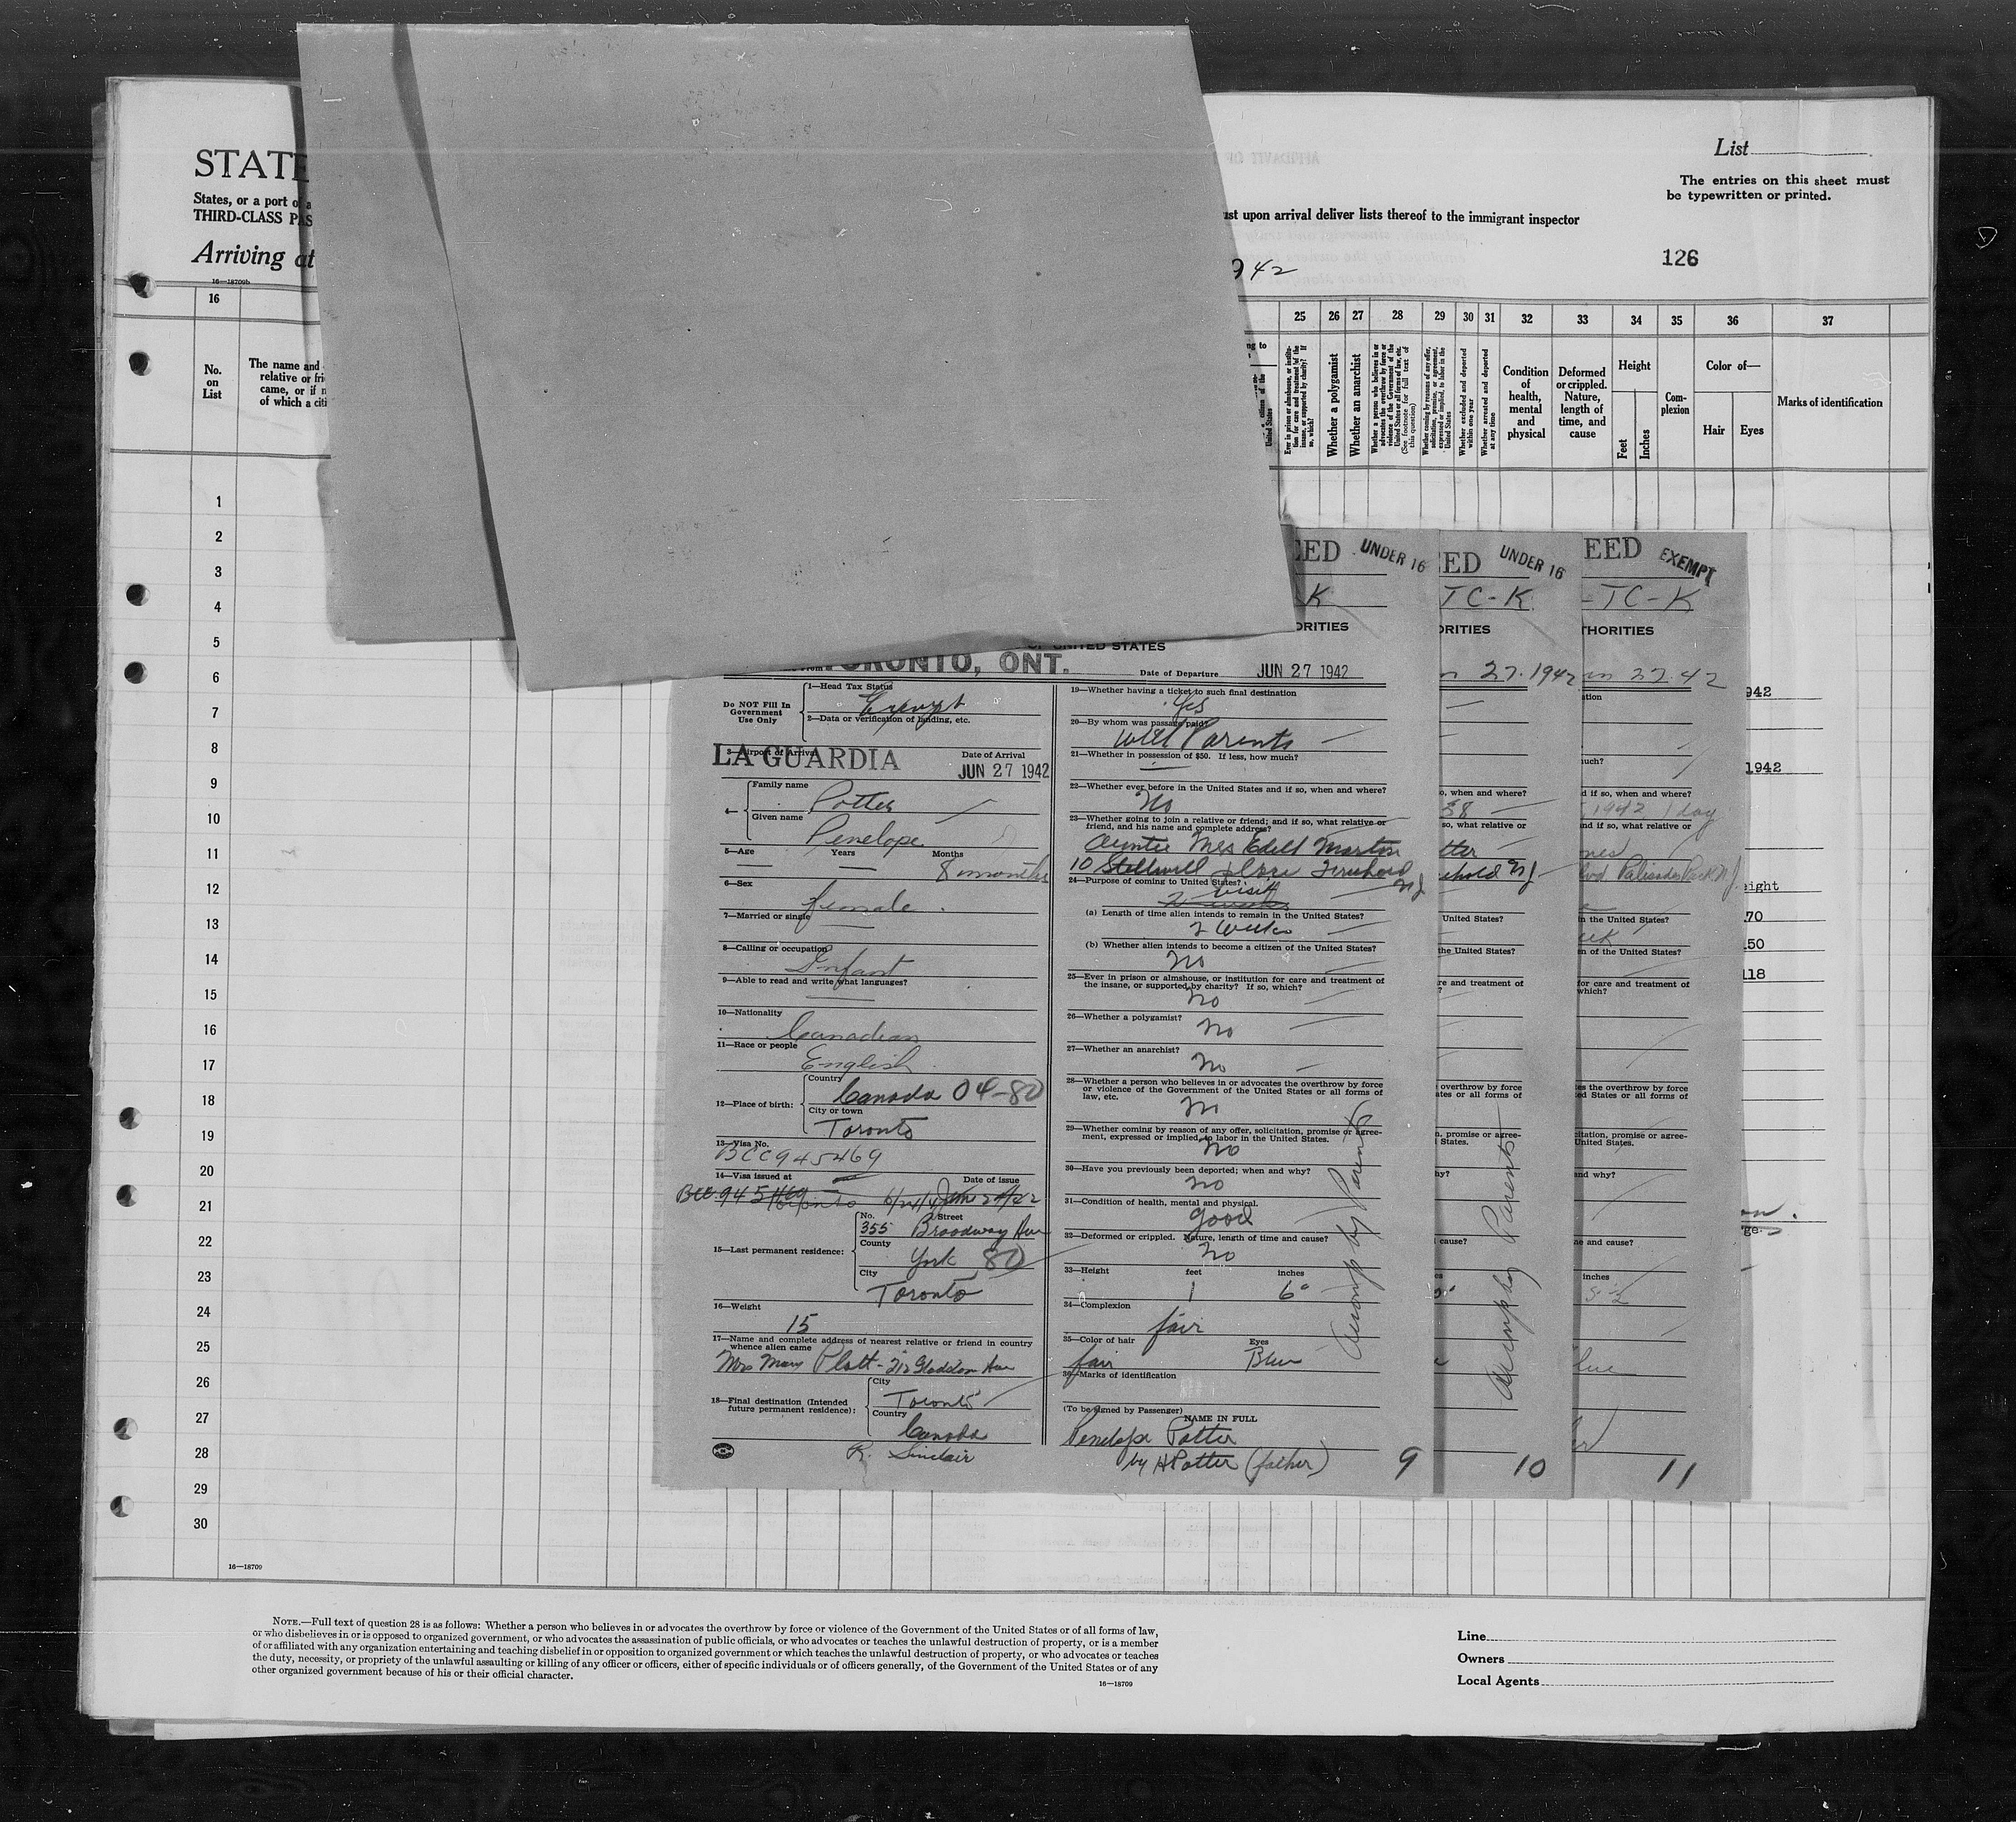 STATE
States, or a port of a
THIRD-CLASS PAS
Arriving at
16—18709b
List
The entries on this sheet must
be typewritten or printed.
ust upon arrival deliver lists thereof to the immigrant inspector
126
942
16
25 26 27 28 29 30 31 32 33 34 35 36 37
No.
on
List
The name and
relative or frie
came, or if n
of which a citi
Whether a polygamist
Whether an anarchist
Whether excluded and deported within one year
Whether arrested and deported at any time
Condition
of
health,
mental
and
physical
Deformed
or crippled.
Nature,
length of
time, and
cause
Height
Feet
Inches
Com-
plexion
Color of—
Hair
Eyes
Marks of identification
1
2
3
4
5
6
7
8
9
10
11
12
13
14
15
16
17
18
19
20
21
22
23
24
25
26
27
28
29
30
16—18709
EED UNDER 16
K
ORITIES
OF UNITED STATES
TORONTO, ONT.
Date of Departure JUN 27 1942
Do NOT Fill In
Government
Use Only
1—Head Tax Status
Exempt
2—Data or verification of landing, etc.
3—Airport of Arrival
LA GUARDIA
Date of Arrival
JUN 27 1942
4—
Family name
Potter
Given name
Penelope
5—Age Years Months
8 months
6—Sex
female
7—Married or single
8—Calling or occupation
Infant
9—Able to read and write what languages?
10—Nationality
Canadian
11—Race or people
English
12—Place of birth:
Country
Canada 04-80
City or town
Toronto
13—Visa No.
BCC945469
14—Visa issued at
Date of issue
15—Last permanent residence:
No. Street
355 Broadway Ave
County
York 80
City
Toronto
16—Weight
15
17—Name and complete address of nearest relative or friend in country
whence alien came
Mrs Mary Platt - 212 Gladdon Ave
18—Final destination (Intended
future permanent residence):
City
Toronto
Country
Canada
R. Sinclair
19—Whether having a ticket to such final destination
Yes
20—By whom was passage paid?
With Parents
21—Whether in possession of $50. If less, how much?
22—Whether ever before in the United States and if so, when and where?
No
23—Whether going to join a relative or friend; and if so, what relative or
friend, and his name and complete address?
Auntie Mrs Edell Morton
10 Stillwell Place Freehold
NJ
24—Purpose of coming to United States?
Visit
(a) Length of time alien intends to remain in the United States?
2 Weeks
(b) Whether alien intends to become a citizen of the United States?
No
25—Ever in prison or almshouse, or institution for care and treatment of
the insane, or supported by charity? If so, which?
No
26—Whether a polygamist?
No
27—Whether an anarchist?
No
28—Whether a person who believes in or advocates the overthrow by force
or violence of the Government of the United States or all forms of
law, etc.
No
29—Whether coming by reason of any offer, solicitation, promise or agree-
ment, expressed or implied, to labor in the United States.
No
30—Have you previously been deported; when and why?
No
31—Condition of health, mental and physical.
Good
32—Deformed or crippled. Nature, length of time and cause?
No
33—Height feet inches
1 6"
34—Complexion
fair
35—Color of hair Eyes
fair Blue
36—Marks of identification
(To be signed by Passenger)
NAME IN FULL
Penelope Potter
by H Potter (father)
9
Accomp by Parents
ED UNDER 16
TC-K
ORITIES
n 27. 1942
o, when and where?
38
so, what relative or
tter
ehold NJ
United States?
the United States?
re and treatment of
overthrow by force
ates or all forms of
n, promise or agree-
States.
hy?
cause?
Accomp by Parents
10
EED EXEMPT
-TC-K
THORITIES
un 27. 42
ation
uch?
d if so, when and where?
1942 1 day
and if so, what relative or
ones
lvd Palisades Park N.J.
in the United States?
eek
en of the United States?
for care and treatment of
which?
es the overthrow by force
ed States or all forms of
citation, promise or agree-
United States.
and why?
ne and cause?
inches
lue
11
942
1942
eight
70
150
118
ge.
NOTE.—Full text of question 28 is as follows: Whether a person who believes in or advocates the overthrow by force or violence of the Government of the United States or of all forms of law,
or who disbelieves in or is opposed to organized government, or who advocates the assassination of public officials, or who advocates or teaches the unlawful destruction of property, or is a member
of or affiliated with any organization entertaining and teaching disbelief in or opposition to organized government or which teaches the unlawful destruction of property, or who advocates or teaches
the duty, necessity, or propriety of the unlawful assaulting or killing of any officer or officers, either of specific individuals or of officers generally, of the Government of the United States or of any
other organized government because of his or their official character.
16—18709
Line
Owners
Local Agents